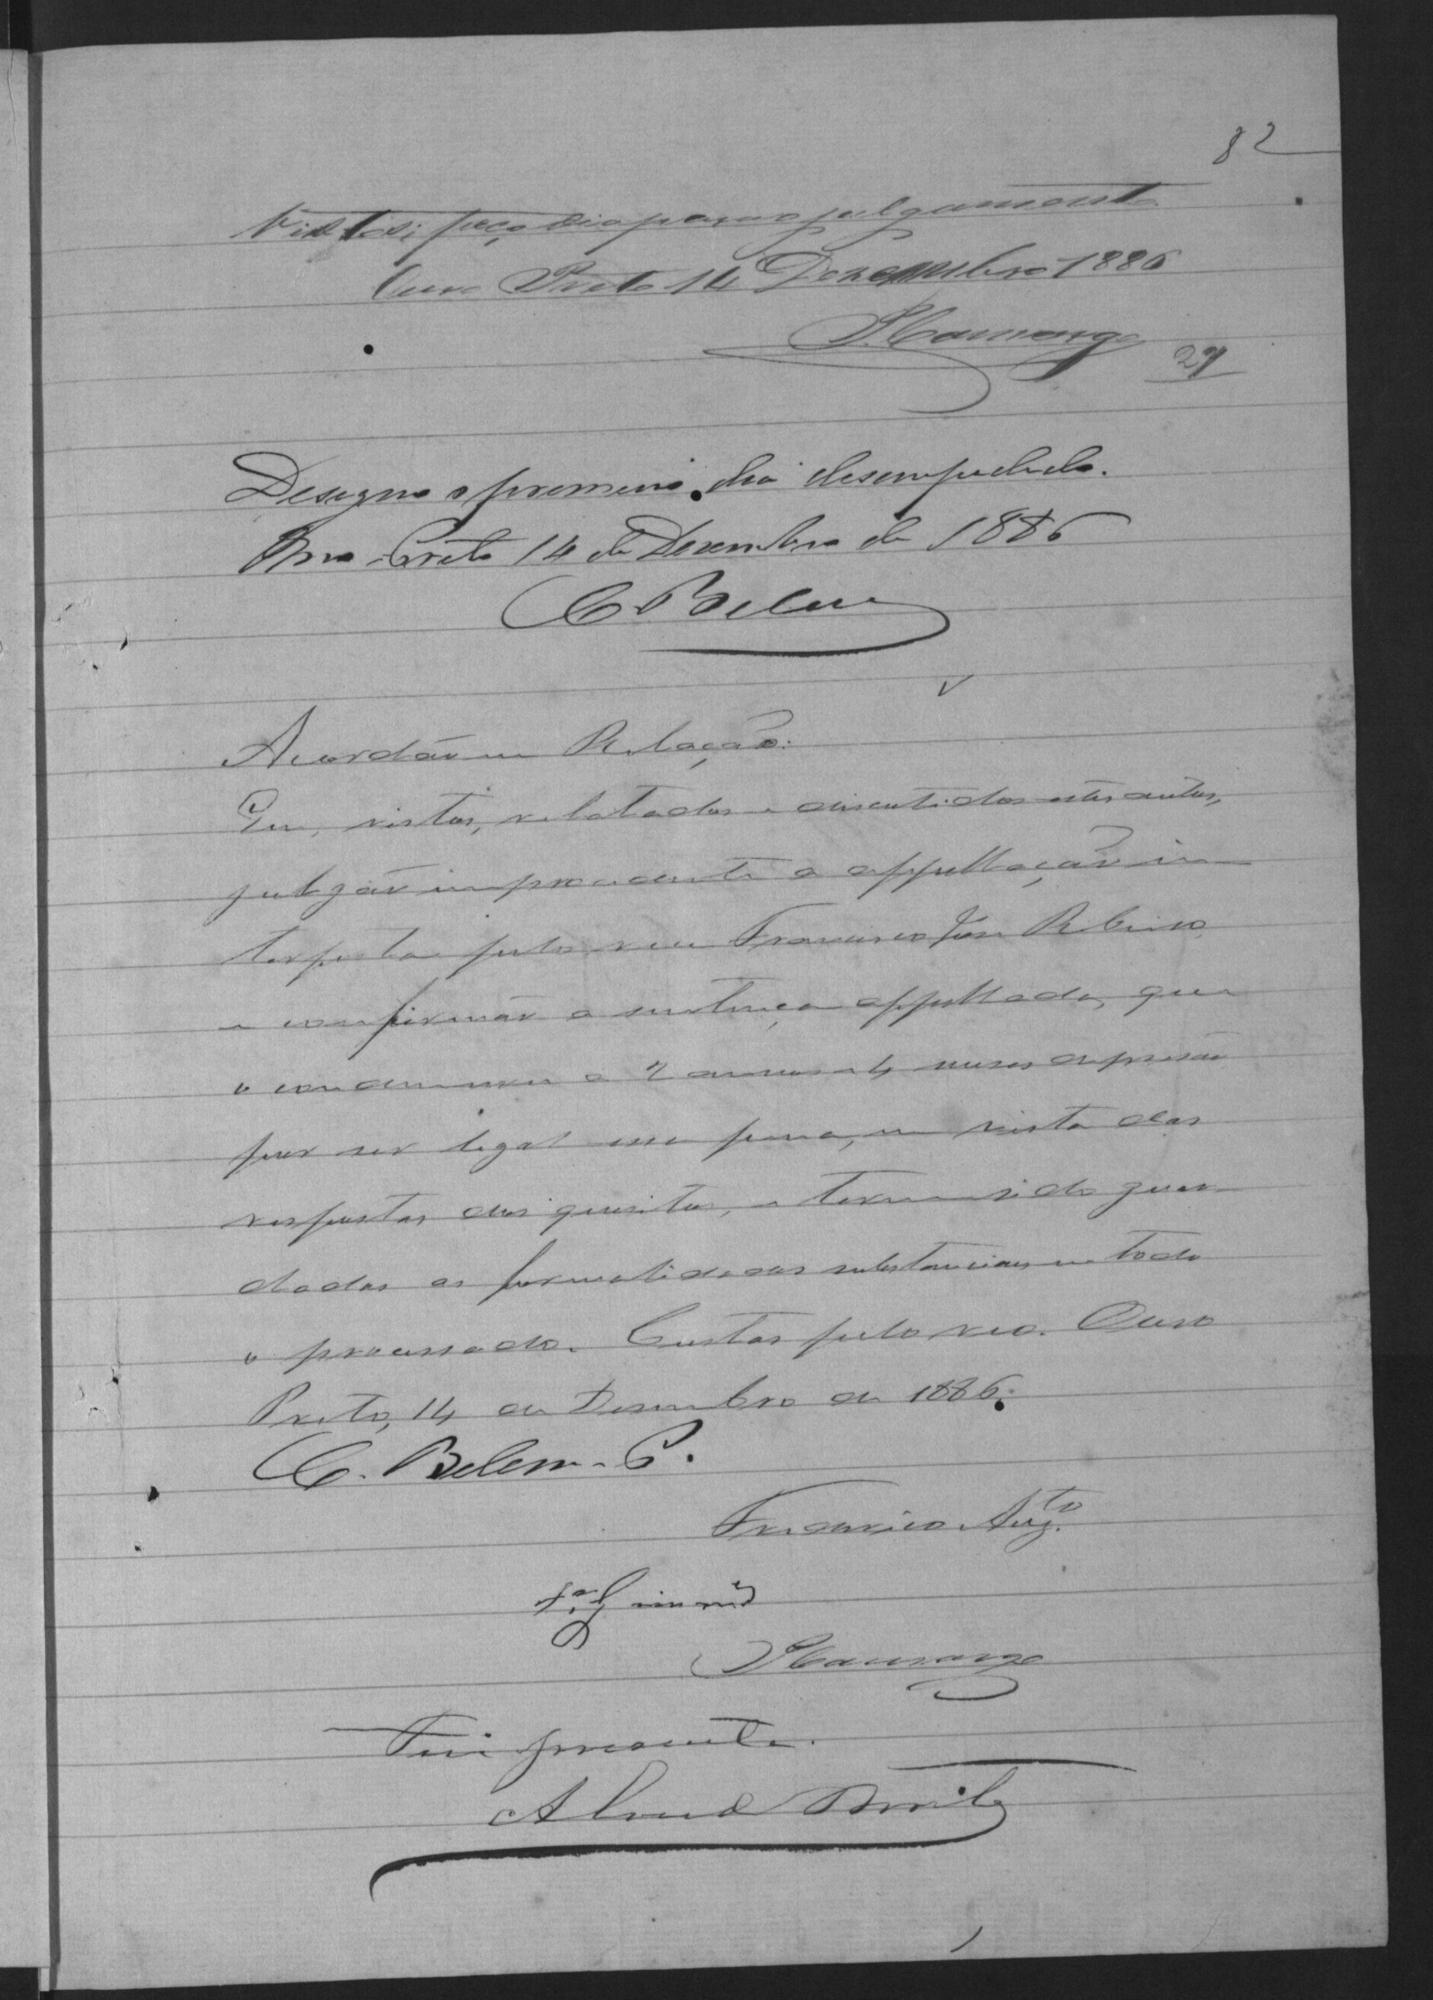 82
Vistos; peço dia para o julgamento
Ouro Preto 14 Dezembro 1886
Camargo
27
Designo o primeiro dia desempedido.
Ouro Preto 14 de Dezembro de 1886
C. Belem
Acordão em Relação:
Que, vistos, relatados e discutidos estes autos,
julgão improcedente a appellação in-
terposta pelo reu Francisco José Ribeiro
e confirmão a sentença appellada, que
o condemnou a 2 annos e 4 meses de prisão
por ser legal essa pena, em vista das
respostas dos quesitos, e terem sido guar-
dadas as formalidades substanciaes em todo
o processado. Custas pelo reo. Ouro
Preto, 14 de Desembro de 1886.
C. Belem. P.
Frederico Augto.
Camargo
Fui presente.
Brito